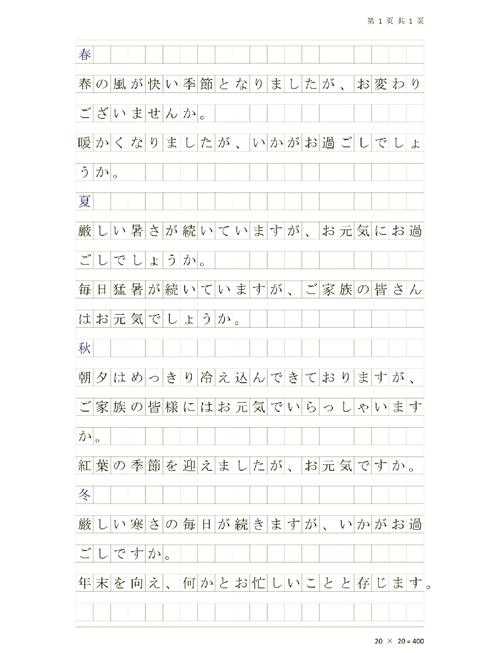 第 1 页 共 1 页
春
春の風が快い季節となりましたが、お変わり
ございませんか。
暖かくなりましたが、いかがお過ごしでしょ
うか。
夏
厳しい暑さが続いていますが、お元気にお過
ごしでしょうか。
毎日猛暑が続いていますが、ご家族の皆さん
はお元気でしょうか。
秋
朝夕はめっきり冷え込んできておりますが、
ご家族の皆様にはお元気でいらっしゃいます
か。
紅葉の季節を迎えましたが、お元気ですか。
冬
厳しい寒さの毎日が続きますが、いかがお過
ごしですか。
年末を向え、何かとお忙しいことと存じます。
20 × 20 = 400